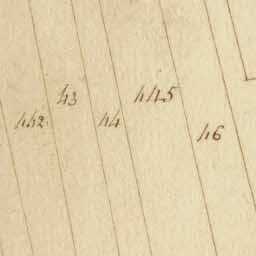 442
43
44
445
46